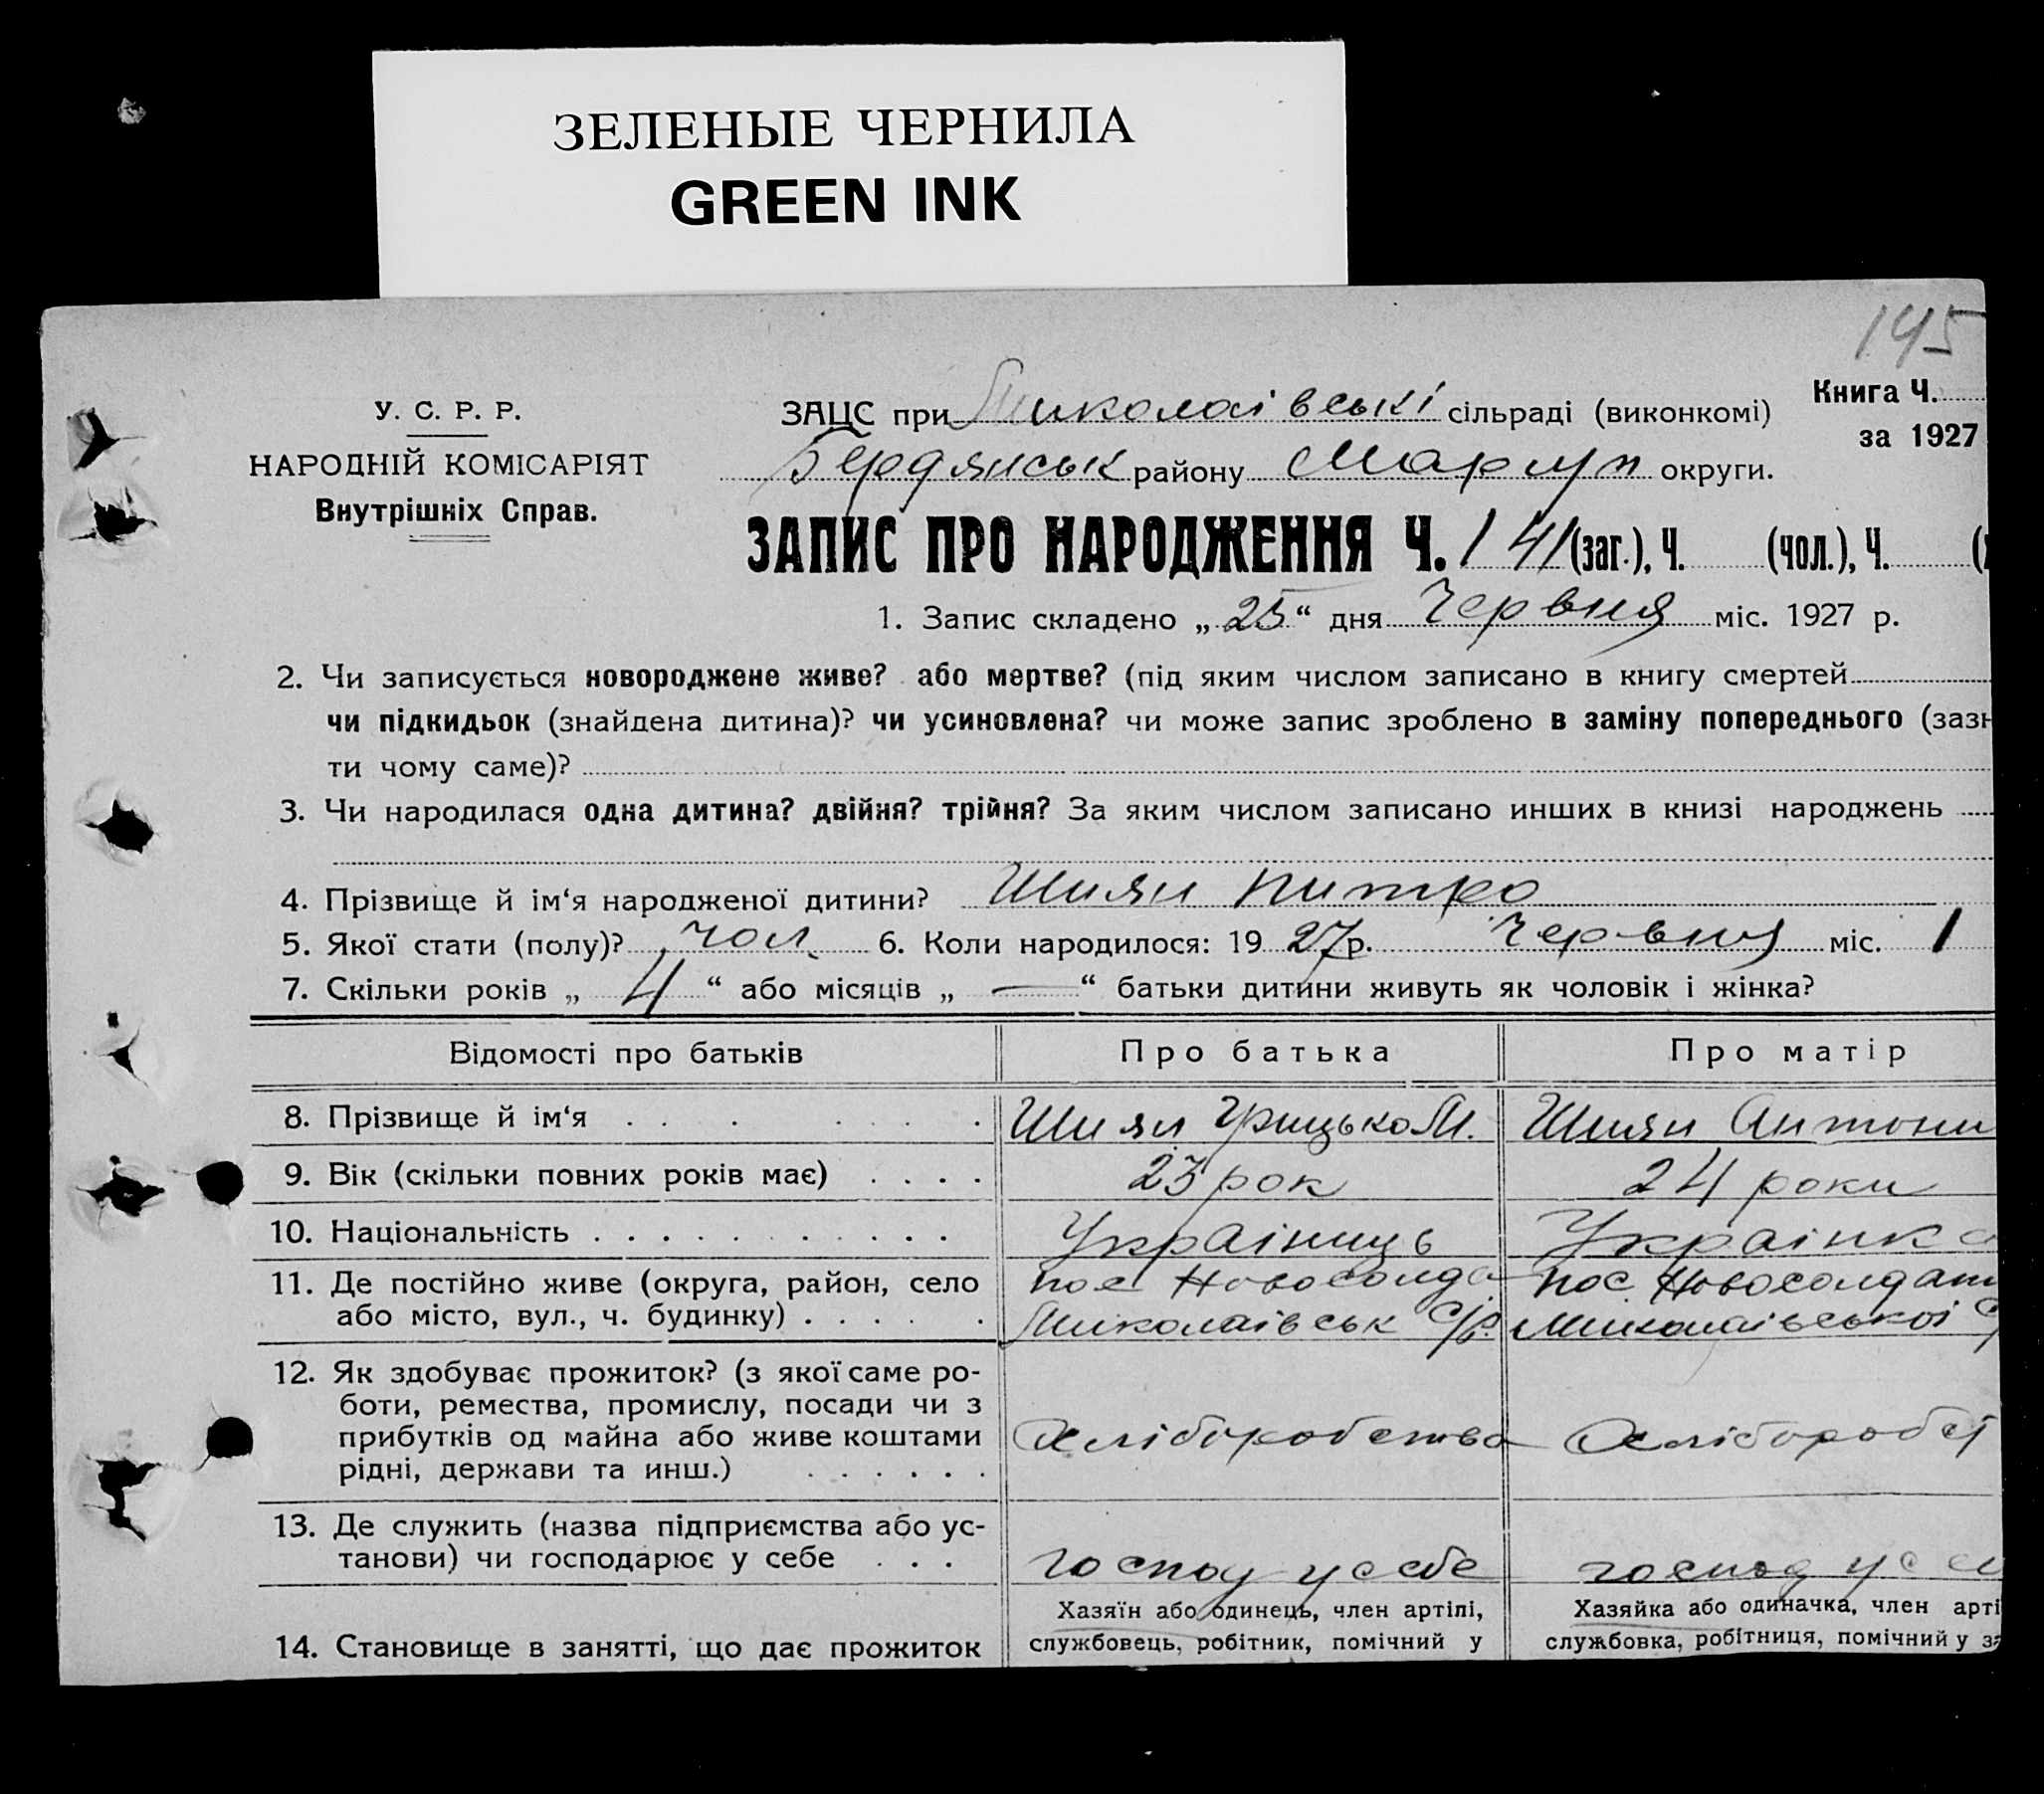 ЗЕЛЕНЫЕ ЧЕРНИЛА
GREEN INK
195
У. С. Р. Р.
НАРОДНІЙ КОМІСАРІЯТ
Внутрішніх Справ.
ЗАЦС при Миколаівські сільраді (виконкомі)
Книга Ч.
за 1927
Бердянськ району Маріуп округи.
ЗАПИС ПРО НАРОДЖЕННЯ Ч. 141 (заг.), Ч. (чол.), Ч.
1. Запис складено „ 25 “ дня Червня міс. 1927 р.
2. Чи записується новороджене живе? або мертве? (під яким числом записано в книгу смертей
чи підкидьок (знайдена дитина)? чи усиновлена? чи може запис зроблено в заміну попереднього (зазн
ти чому саме)?
3. Чи народилася одна дитина? двійня? трійня? За яким числом записано инших в книзі народжень
4. Прізвище й ім‘я народженої дитини? Шиян Питро
5. Якої стати (полу)? чол. 6. Коли народилося: 19 27 р. Червня міс. 1
7. Скільки років „ 4 “ або місяців „ — “ батьки дитини живуть як чоловік і жінка?
Відомості про батьків Про батька Про матір
8. Прізвище й ім‘я Шиян Грицько М. Шиян Антони
9. Вік (скільки повних років має) 23 рок 24 роки
10. Національність Украінць Украінка
11. Де постійно живе (округа, район, село пос Новосолда пос Новосолдат
або місто, вул., ч. будинку) Миколаівськ С/р. Миколаівськоі С/
12. Як здобуває прожиток? (з якої саме ро-
боти, ремества, промислу, посади чи з
прибутків од майна або живе коштами Хліборобство Хліборобст
рідні, держави та инш.)
13. Де служить (назва підприємства або ус-
танови) чи господарює у себе господ у себе господ у се
Хазяїн або одинець, член артілі, Хазяйка або одиначка, член арті
14. Становище в занятті, що дає прожиток службовець, робітник, помічний у службовка, робітниця, помічний у за